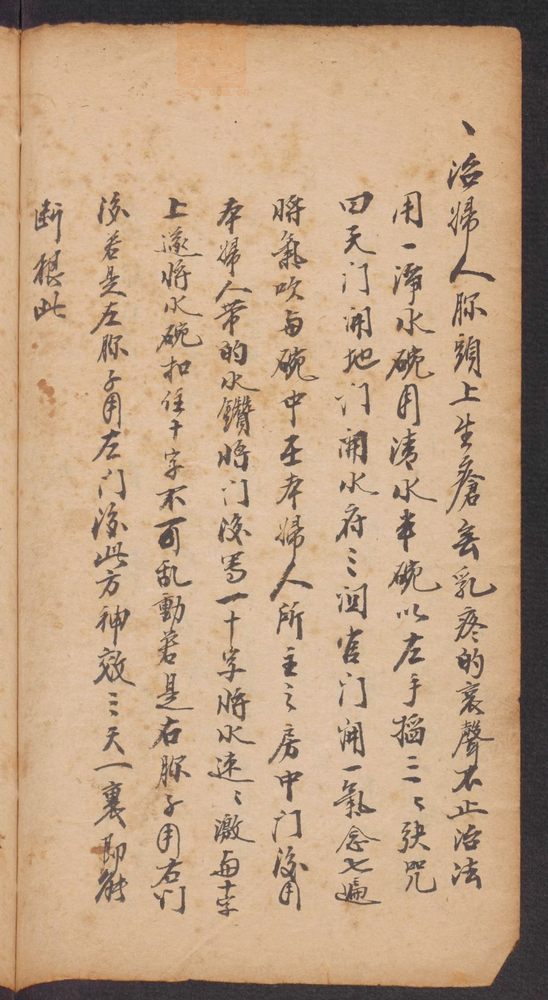 、治婦人胗頭上生瘡無乳疼的哀聲不止治法
用一淨水碗用清水半碗以左手搯三三訣咒
曰天门開地门開水府三洞官门開一氣念七遍
將氣吹与碗中在本婦人所主之房中门後用
本婦人帶的水鑽將门後写一十字將水速速激与十字
上遂將水碗扣住十字不可乱動若是右胗子用右门
後若是左胗子用左门後此方神效三天一裏即能
断根此